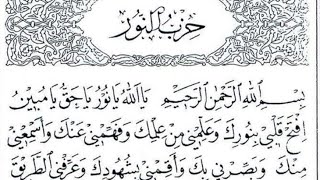 حِزْبُ النُّورِ
بِسْمِ اللهِ الرَّحْمٰنِ الرَّحِيْمِ يَا اَللهُ يَا نُوْرُ يَا حَقُّ يَا مُبِيْنُ
اِفْتَحْ قَلْبِيْ بِنُوْرِكَ وَعَلِّمْنِيْ مِنْ عِلْمِكَ وَفَهِّمْنِيْ عَنْكَ وَاَسْمِعْنِيْ
مِنْكَ وَبَصِّرْنِيْ بِكَ وَاَقِمْنِيْ بِشُهُوْدِكَ وَعَرِّفْنِيْ الطَّرِيْقَ